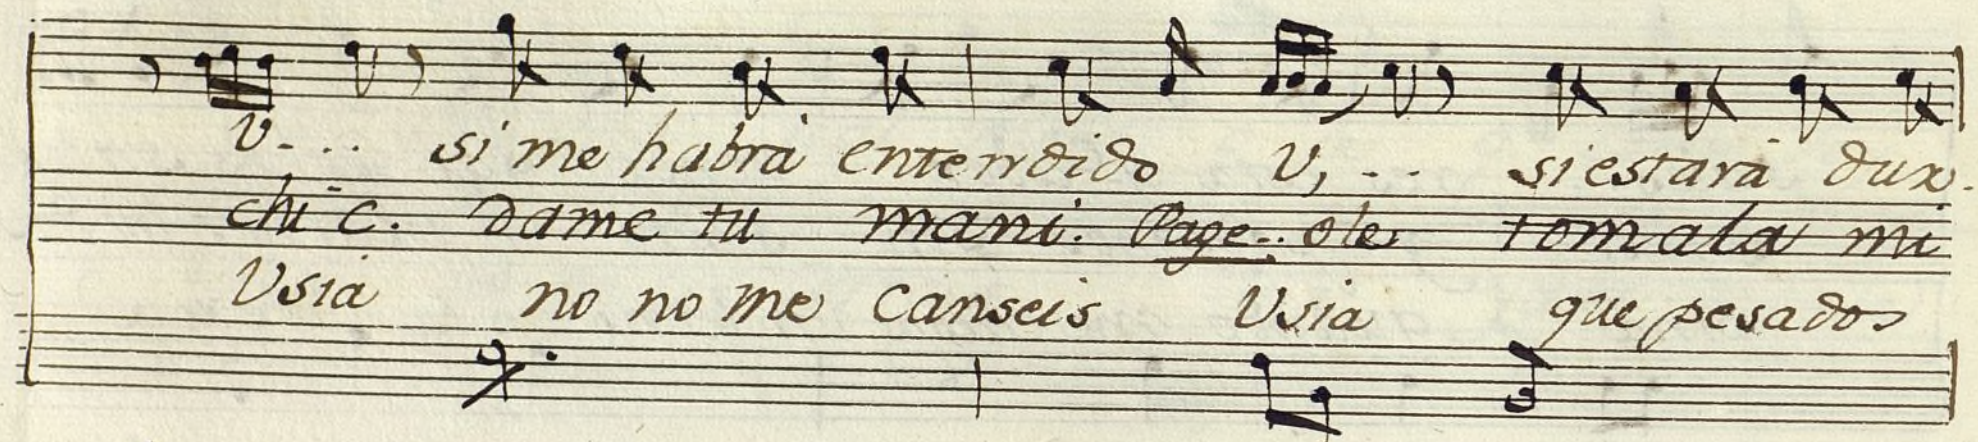 V... si me habrá entendido V,... si estará dux.
chi c. Dame tu mani. Page.. ole tomala mi
Vsia no no me canseis Vsia que pesados